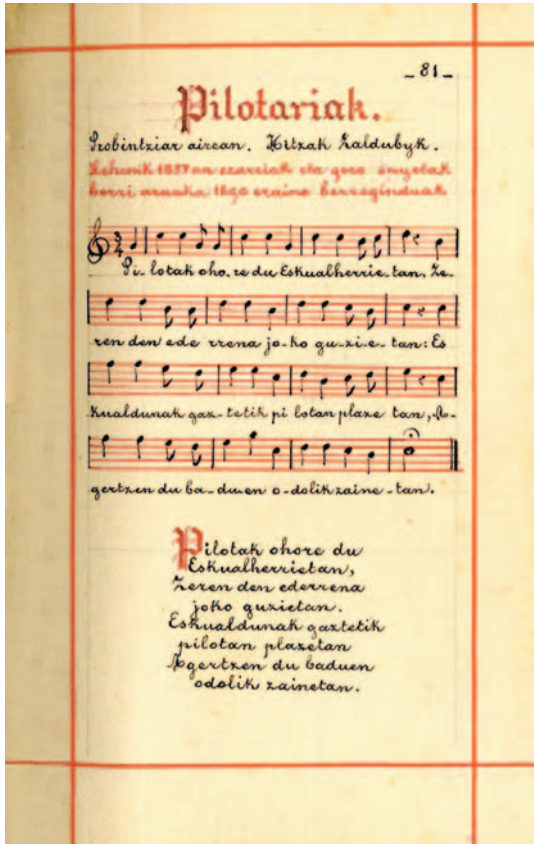 -81-
Pilotariak.
Probintziar airean. Hitzak Zaldubyk.
Lehenik 1857an ezarriak eta gero
berri 1890 berreginduak
Pi-lotak oho-re du Eskualherrie-tan, Ze-
ren den ede rrena jo-ko gu-zi-e-tan: Es
kualdunak gaz-tetik pi lotan plaze tan, A-
gertzen du ba-duen o-dolik zaine-tan.
Pilotak ohore du
Eskualherrietan,
Zeren den ederrena
joko guzietan.
Eskualdunak gaztetik
pilotan plazetan
Agertzen du baduen
odolik zainetan.